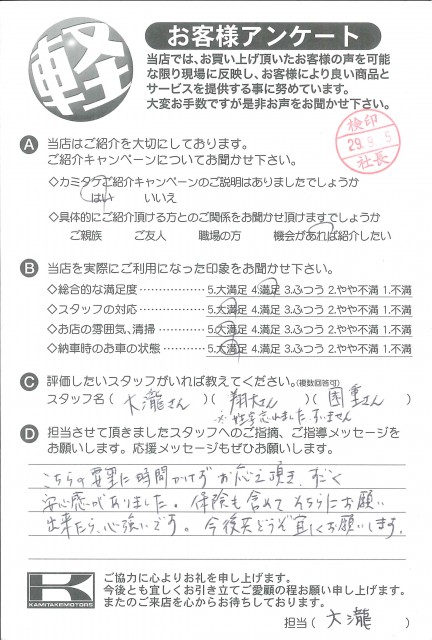 軽
お客様アンケート
当店では、お買い上げ頂いたお客様の声を可能
な限り現場に反映し、お客様により良い商品と
サービスを提供する事に努めています。
大変お手数ですが是非お声をお聞かせ下さい。
検印
29.9.5
社長
A 当店はご紹介を大切にしております。
ご紹介キャンペーンについてお聞かせ下さい。
◇カミタケご紹介キャンペーンのご説明はありましたでしょうか
はい いいえ
◇具体的にご紹介頂ける方とのご関係をお聞かせ頂けますでしょうか
ご親族 ご友人 職場の方 機会があれば紹介したい
B 当店を実際にご利用になった印象をお聞かせ下さい。
◇総合的な満足度 5.大満足 4.満足 3.ふつう 2.やや不満 1.不満
◇スタッフの対応 5.大満足 4.満足 3.ふつう 2.やや不満 1.不満
◇お店の雰囲気、清掃 5.大満足 4.満足 3.ふつう 2.やや不満 1.不満
◇納車時のお車の状態 5.大満足 4.満足 3.ふつう 2.やや不満 1.不満
C 評価したいスタッフがいれば教えてください。(複数回答可)
スタッフ名( 大瀧さん )( 翔太さん )( 国重さん )
※姓忘れました。すいません
D 担当させて頂きましたスタッフへのご指摘、ご指導メッセージを
お願いします。応援メッセージもぜひお願いします。
こちらの要望に時間かけずお応え頂き、すごく
安心感がありました。保険も含めてそちらにお願い
出来たら、心強いです。今後共どうぞ宜しくお願いします。
K
KAMITAKEMOTORS
ご協力に心よりお礼を申し上げます。
今後とも宜しくお引き立てご愛顧の程お願い申し上げます。
またのご来店を心からお待ちしております。
担当( 大瀧 )